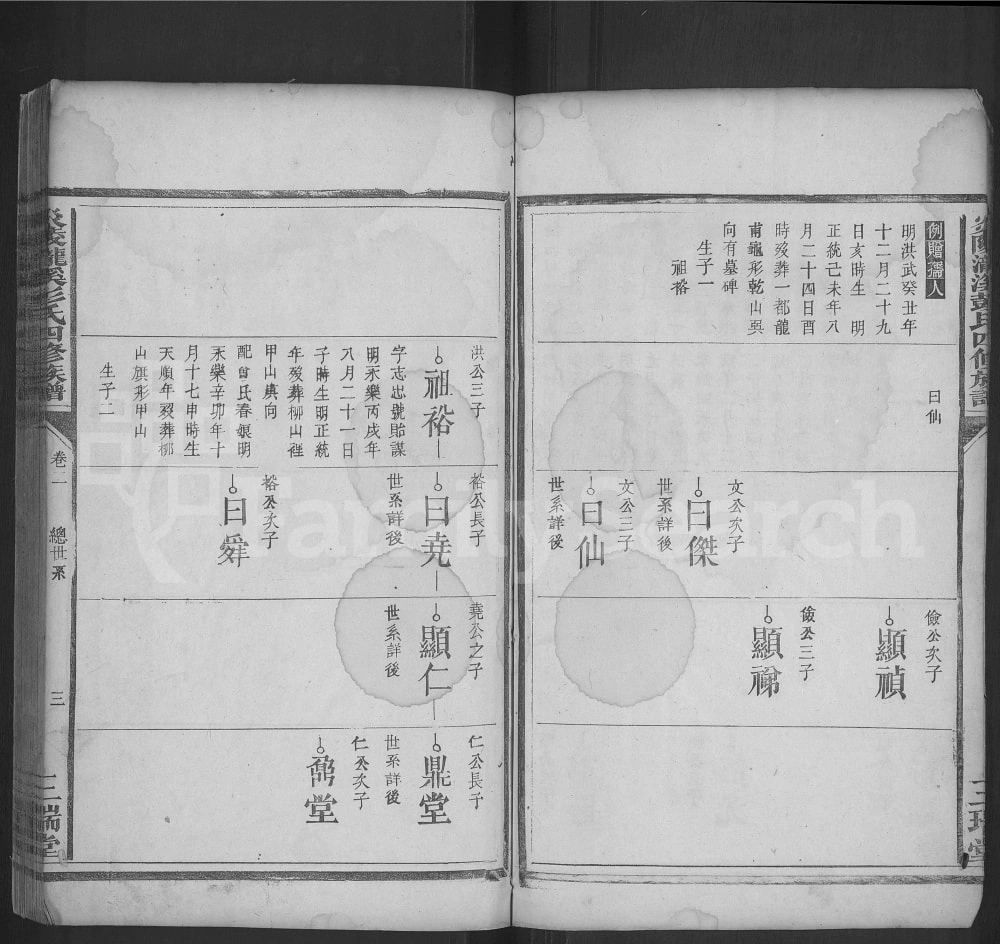 例贈孺人
明洪武癸丑年
十二月二十九
日亥時生 明
正統己未年八
月二十四日酉
時歿葬一都龍
甫龜形乾山巽
向有墓碑
生子一
祖裕
曰仙
文公次子
曰傑
世系詳後
文公三子
曰仙
世系詳後
儉公次子
顯禎
儉公三子
顯禘
洪公三子
祖裕
字志忠號貽謀
明永樂丙戌年
八月二十一日
子時生明正統
年歿葬柳山裡
甲山庚向
配曾氏春娘明
永樂辛卯年十
月十七申時生
天順年歿葬柳
山旗形甲山
生子二
裕公長子
曰堯
世系詳後
裕公次子
曰舜
堯公之子
顯仁
世系詳後
仁公長子
鼎堂
世系詳後
仁公次子
鼐堂
彭氏四修族譜
卷一
總世系
三
三瑞堂
FamilySearch